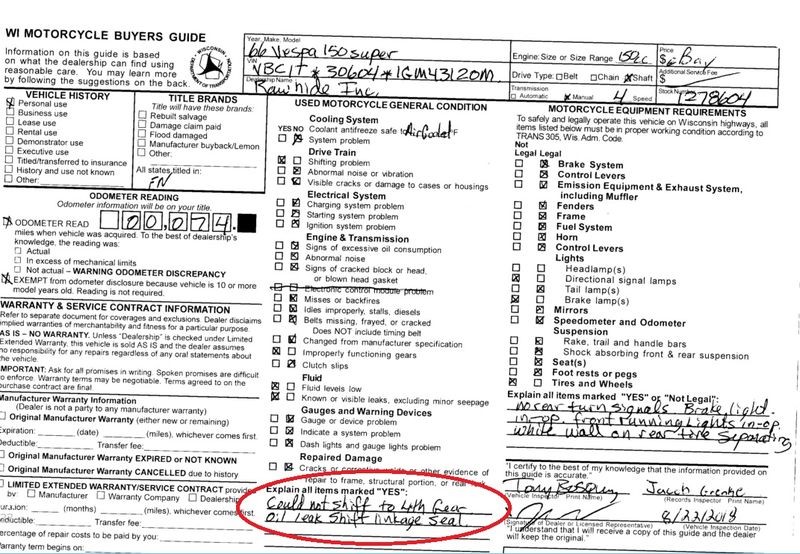 WI MOTORCYCLE BUYERS GUIDE
Information on this guide is based
on what the dealership can find using
reasonable care. You may learn more
by following the suggestions on the back.
WISCONSIN
Year, Make, Model
66 Vespa 150 super
VIN
VBC1T * 30604 * IGM 4312OM
Dealership Name
Rawhide Inc.
Engine: Size or Size Range 150cc
Price
$ eBay
Drive Type: Belt Chain Shaft
Additional Service Fee
$
Transmission
Automatic Manual 4 Speed
Stock Number
1278604
VEHICLE HISTORY
Personal use
Business use
Lease use
Rental use
Demonstrator use
Executive use
Titled/transferred to insurance
History and use not known
Other:
TITLE BRANDS
Title will have these brands:
Rebuilt salvage
Damage claim paid
Flood damaged
Manufacturer buyback/Lemon
Other:
All states titled in:
FN
ODOMETER READING
Odometer information will be on your title.
ODOMETER READ 00,074.
miles when vehicle was acquired. To the best of dealership's
knowledge, the reading was:
Actual
In excess of mechanical limits
Not actual – WARNING ODOMETER DISCREPANCY
EXEMPT from odometer disclosure because vehicle is 10 or more
model years old. Reading is not required.
WARRANTY & SERVICE CONTRACT INFORMATION
Refer to separate document for coverages and exclusions. Dealer disclaims
implied warranties of merchantability and fitness for a particular purpose.
AS IS – NO WARRANTY. Unless "Dealership" is checked under Limited
Extended Warranty, this vehicle is sold AS IS and the dealer assumes
no responsibility for any repairs regardless of any oral statements about
the vehicle.
IMPORTANT: Ask for all promises in writing. Spoken promises are difficult
to enforce. Warranty terms may be negotiable. Terms agreed to on the
purchase contract are final.
Manufacturer Warranty Information
(Dealer is not a party to any manufacturer warranty)
Original Manufacturer Warranty (either new or remaining)
Expiration: (date) (miles), whichever comes first.
Deductible: Transfer fee:
Original Manufacturer Warranty EXPIRED or NOT KNOWN
Original Manufacturer Warranty CANCELLED due to history
LIMITED EXTENDED WARRANTY/SERVICE CONTRACT provided
by: Manufacturer Warranty Company Dealership
Duration: (months) (miles), whichever comes first.
Deductible: Transfer fee:
Percentage of repair costs to be paid by you:
Warranty term begins on:
USED MOTORCYCLE GENERAL CONDITION
Cooling System
YES NO Coolant antifreeze safe to Air Cooled °F
System problem
Drive Train
Shifting problem
Abnormal noise or vibration
Visible cracks or damage to cases or housings
Electrical System
Charging system problem
Starting system problem
Ignition system problem
Engine & Transmission
Signs of excessive oil consumption
Abnormal noise
Signs of cracked block or head,
or blown head gasket
Electronic control module problem
Misses or backfires
Idles improperly, stalls, diesels
Belts missing, frayed, or cracked
Does NOT include timing belt
Changed from manufacturer specification
Improperly functioning gears
Clutch slips
Fluid
Fluid levels low
Known or visible leaks, excluding minor seepage
Gauges and Warning Devices
Gauge or device problem
Indicate a system problem
Dash lights and gauge lights problem
Repaired Damage
Cracks or corrective welds or other evidence of
repair to frame, structural portion, or rear
Explain all items marked "YES":
Could not shift to 4th Gear
Oil leak shift linkage seal.
MOTORCYCLE EQUIPMENT REQUIREMENTS
To safely and legally operate this vehicle on Wisconsin highways, all
items listed below must be in proper working condition according to
TRANS 305, Wis. Adm. Code.
Not
Legal Legal
Brake System
Control Levers
Emission Equipment & Exhaust System,
including Muffler
Fenders
Frame
Fuel System
Horn
Control Levers
Lights
Headlamp(s)
Directional signal lamps
Tail lamp(s)
Brake lamp(s)
Mirrors
Speedometer and Odometer
Suspension
Rake, trail and handle bars
Shock absorbing front & rear suspension
Seat(s)
Foot rests or pegs
Tires and Wheels
Explain all items marked "YES" or "Not Legal":
no rear turn signals. Brake light.
in-op. front running lights in-op.
white wall on rear tire separating
"I certify to the best of my knowledge that the information provided on
this guide is accurate."
(Vehicle Inspector Print Name) (Records Inspector Print Name)
8/22/2013
(Signature of Dealer or Licensed Representative) (Vehicle Inspection Date)
"I understand that I will receive a copy of this guide and the dealer
will keep the original."